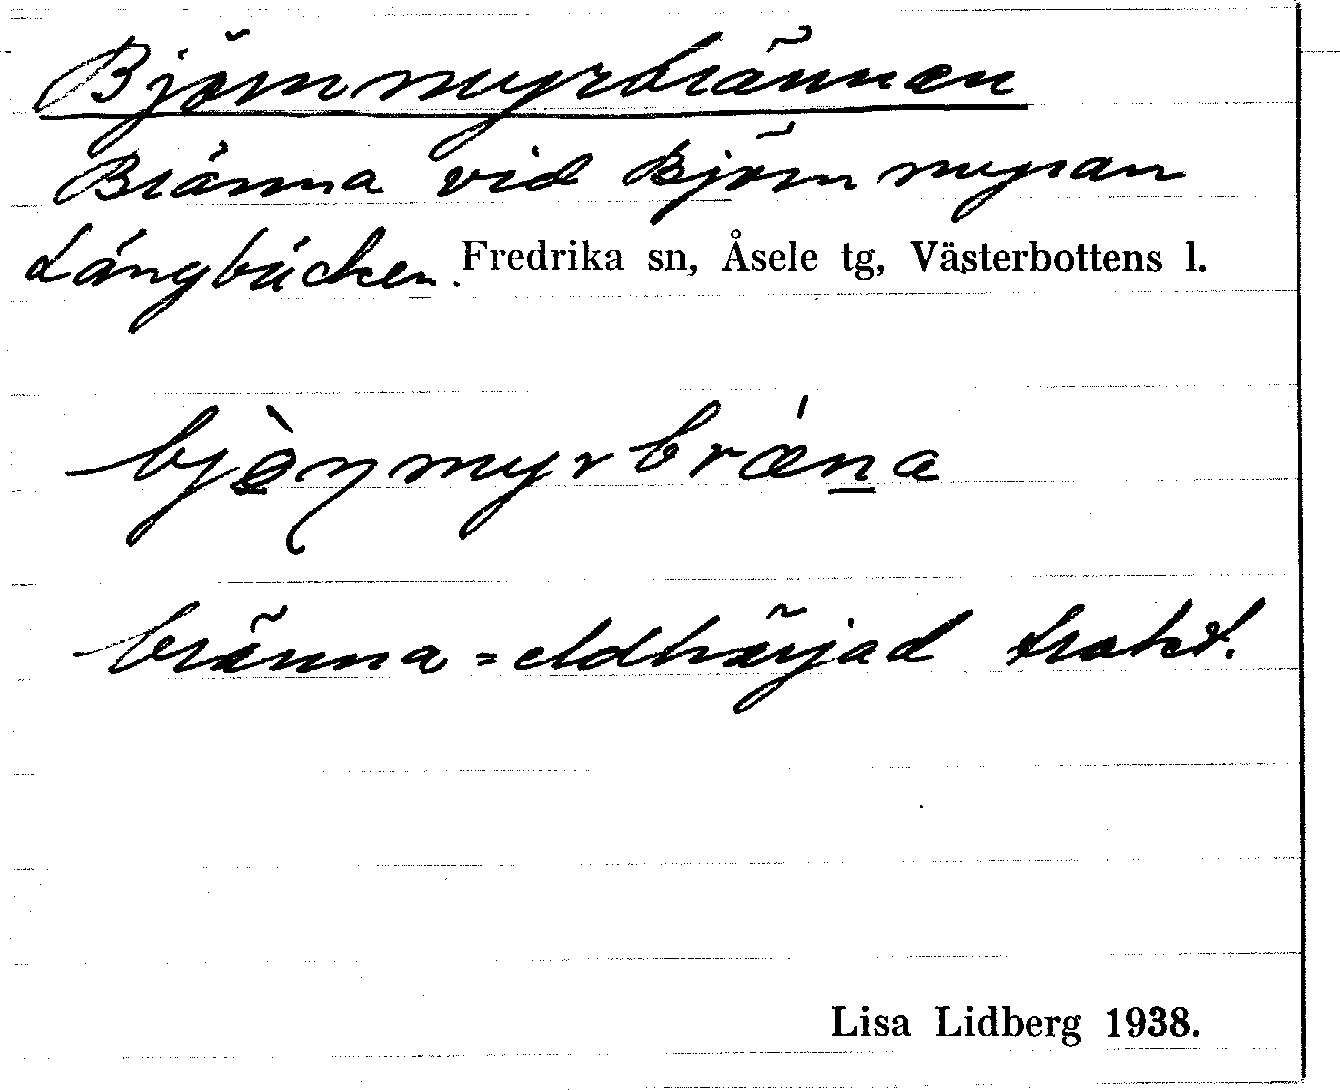 Björnmyrbrännen
Bränna vid Björnmyran
Långbäcken. Fredrika sn, Åsele tg, Västerbottens l.
bjò̱ɳmyrbrǽṉa
bränna = eldhärjad trakt.
Lisa Lidberg 1938.